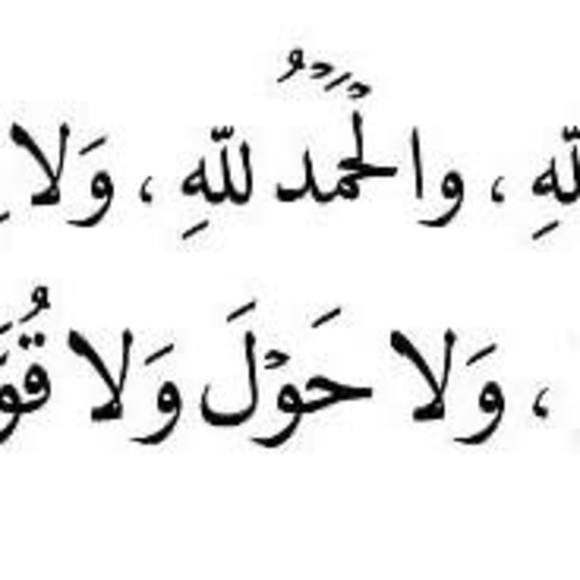 لِلَّهِ ، والْحَمْدُ لِلَّهِ ، وَلا
، وَلا حَوْلَ وَلا قُوَّ